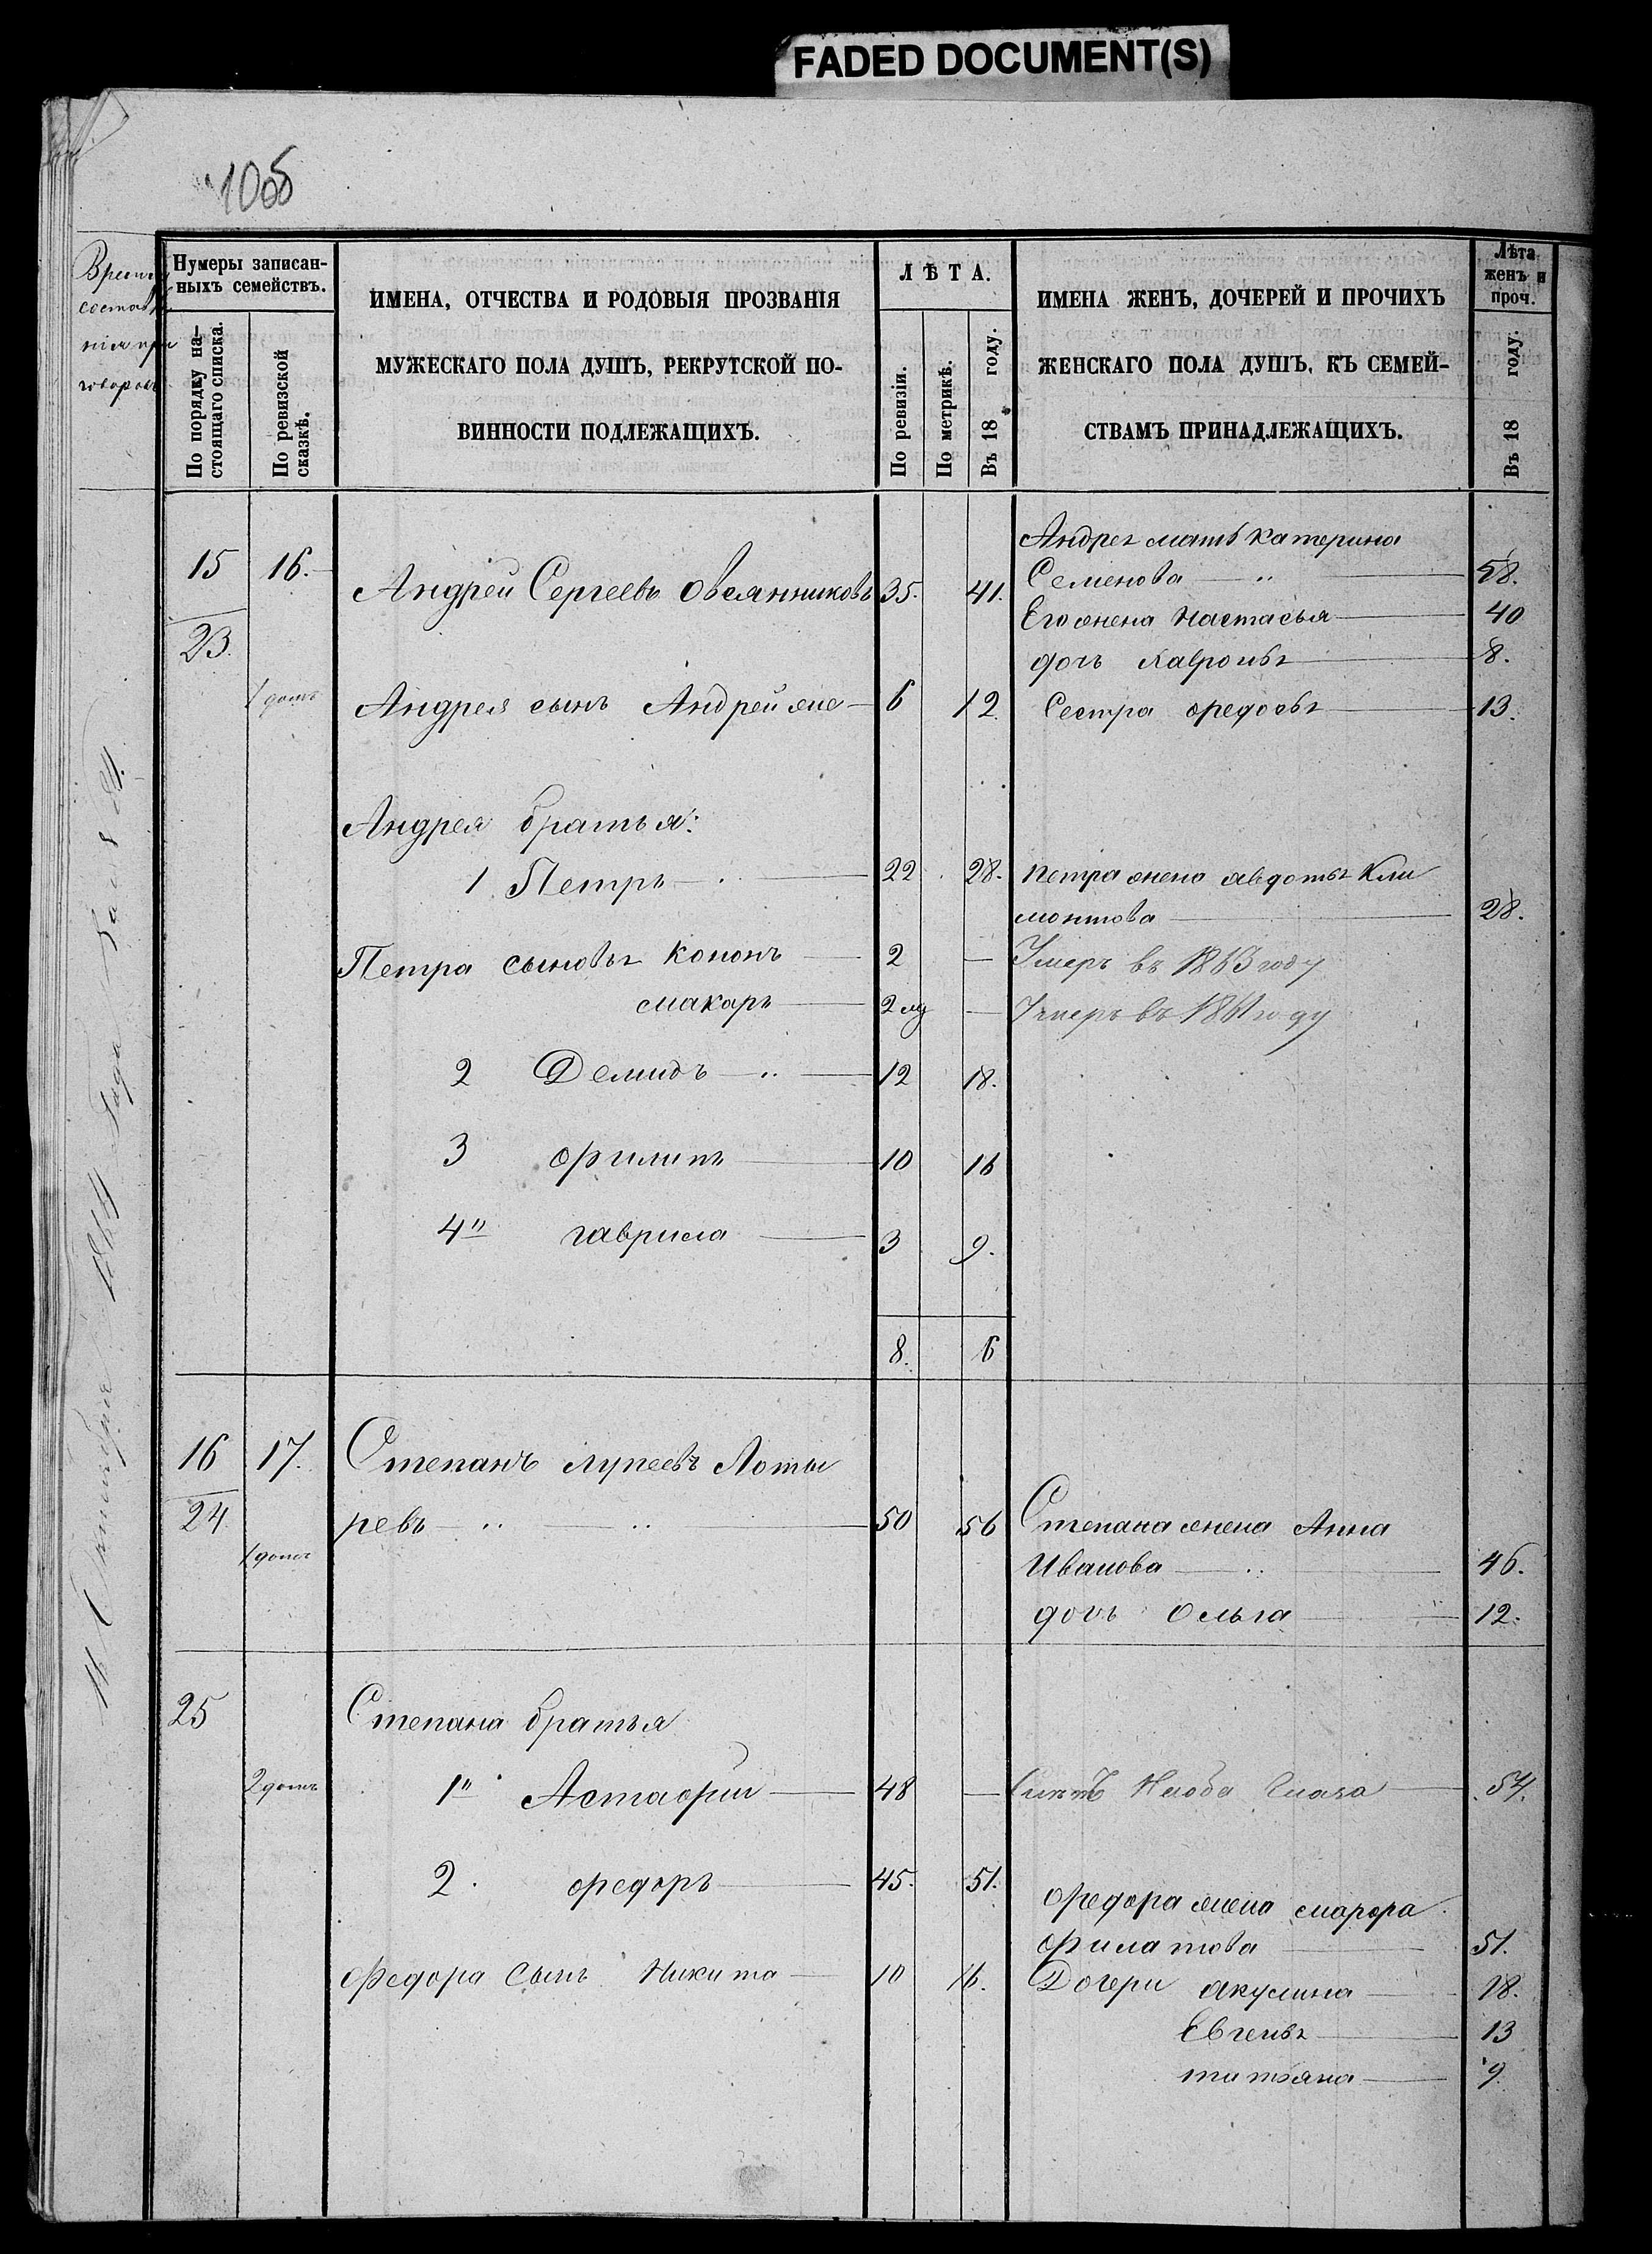 FADED DOCUMENT(S)
Нумеры записан-
ныхъ семействъ.
По порядку на-
стоящаго списка.
По ревизской
сказкѣ.
ИМЕНА, ОТЧЕСТВА И РОДОВЫЯ ПРОЗВАНІЯ
МУЖЕСКАГО ПОЛА ДУШЪ, РЕКРУТСКОЙ ПО-
ВИННОСТИ ПОДЛЕЖАЩИХЪ.
ЛѢТА.
По ревизіи.
По метрикѣ.
Въ 18 году.
ИМЕНА ЖЕНЪ, ДОЧЕРЕЙ И ПРОЧИХЪ
ЖЕНСКАГО ПОЛА ДУШЪ, КЪ СЕМЕЙ-
СТВАМЪ ПРИНАДЛЕЖАЩИХЪ.
Лѣта
женъ и
проч.
Въ 18 году.
Андрея мать катерина
15 16. Андрей Сергеевъ Овсянниковъ 35. 41. Семенова 58.
Его жена Настасья 40
23. дочь Хавронья 8.
1 домъ Андрея сынъ Андрей же 6 12. Сестра федосья 13.
Андрея братья:
1 Петръ 22 28. петра жена авдотья Кли
монтова 28.
Петра сыновья кононъ 2 — Умеръ въ 1863 году
макаръ 2 — Умеръ въ 1861 году
2 Демидъ 12 18.
3 филипъ 10 16
4 гаврила 3 9.
8. 6
16 17. Степанъ лупеевъ Лоты
24 ревъ 50 56 Степана жена Анна
1 домъ Ивановa 46.
дочь Ольга 12.
25 Степана братья
2 домъ 1 Астафий 48 — 54.
2. федоръ 45. 51. федора жена марфа
филатова 51.
федора сынъ Никита 10 16. Дочери акулина 18.
Евгенья 13
татьяна 9